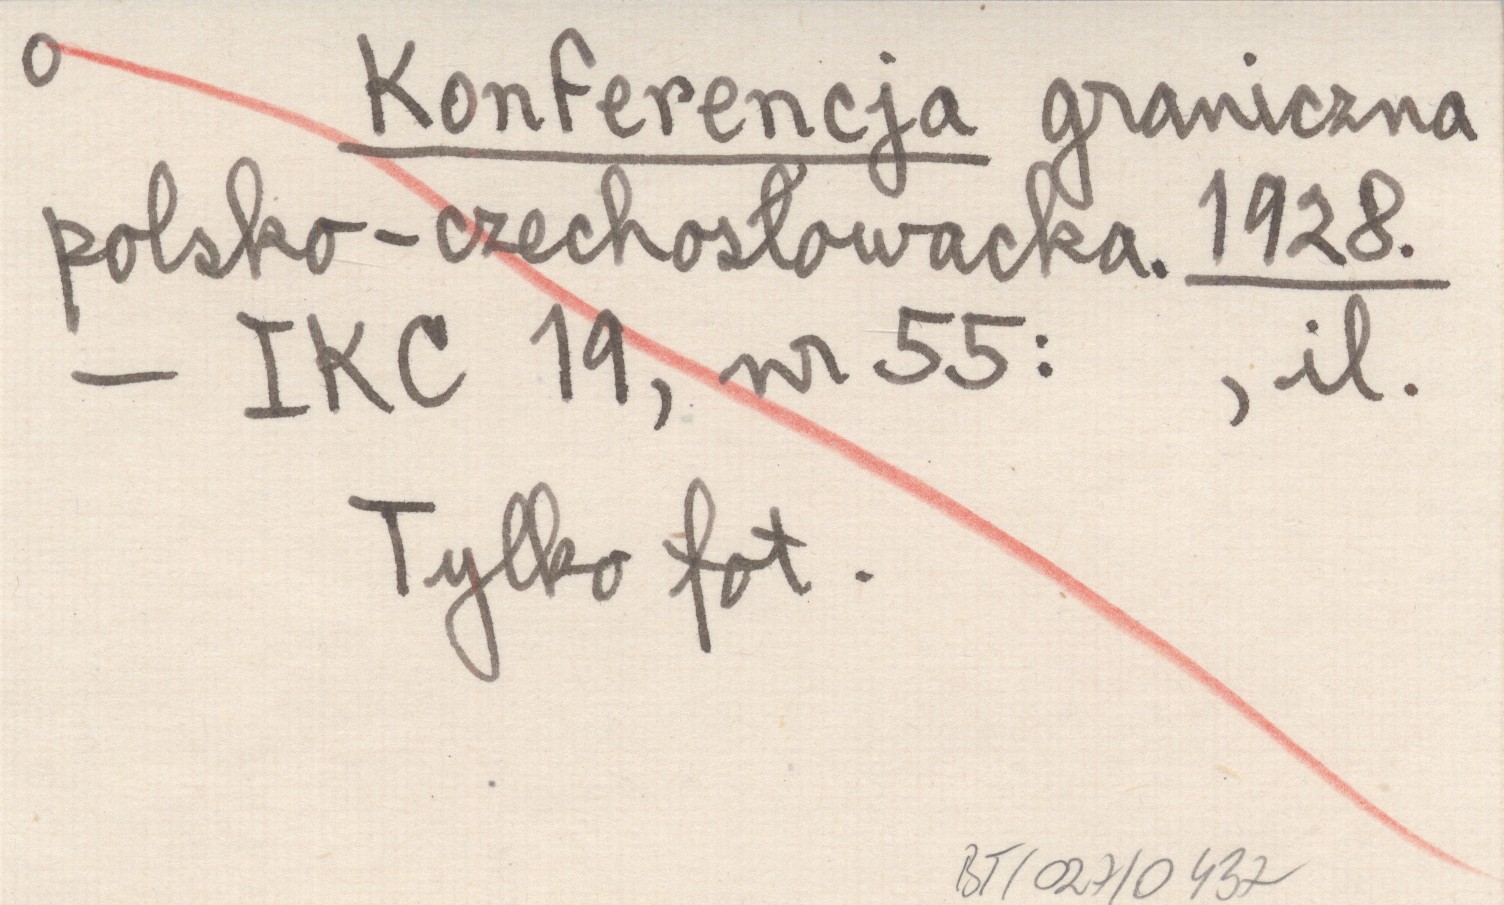 o Konferencja graniczna
polsko-czechosłowacka. 1928.
– IKC 19, nr 55: , il.
Tylko fot.
BT/027/0437